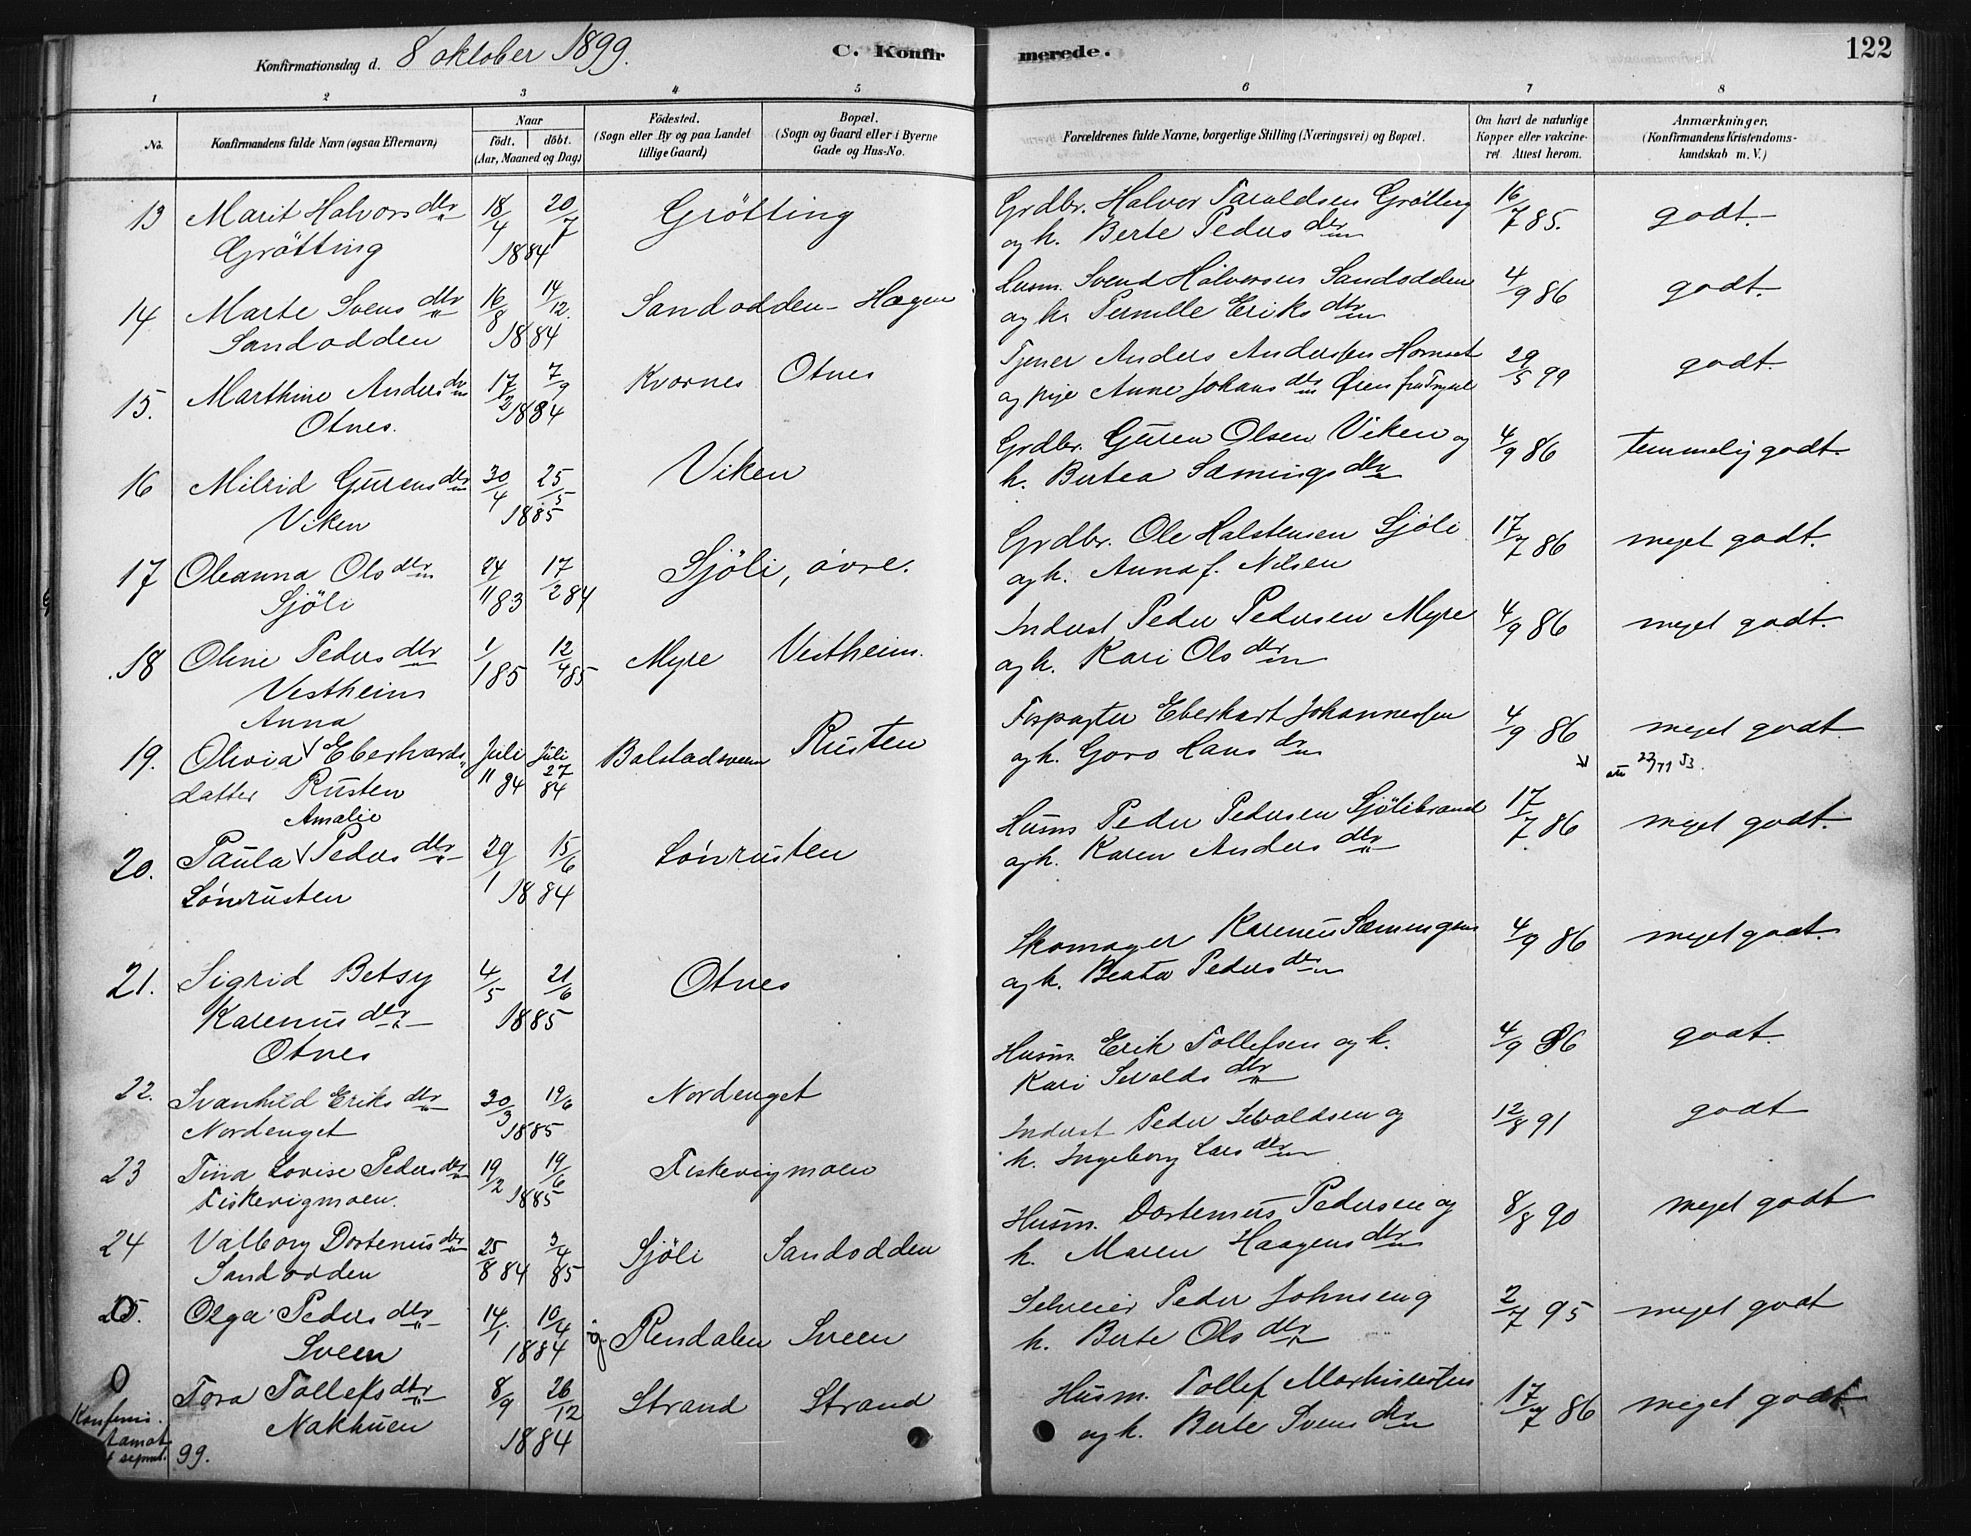 Konfirmationsdag d. 8 oktober 1899.
C. Konfirmerede.
122
1 2 3 4 5 6 7 8
No.
Konfirmandens fulde Navn (ogsaa Efternavn)
Naar
födt. döbt.
(Aar, Maaned og Dag)
Födested.
(Sogn eller By og paa Landet
tillige Gaard)
Bopæl.
(Sogn og Gaard eller i Byerne
Gade og Hus-No.
Forældrenes fulde Navne, borgerlige Stilling (Næringsvei) og Bopæl.
Om havt de naturlige
Kopper eller vakcine-
ret Attest herom.
Anmærkninger.
(Konfirmandens Kristendoms-
kundskab m. V.)
13 Marit Halvorsdtr 18/4 20/7 Grötting Grdbr. Halvor Taraldsen Grötting 16/7 85. godt.
Grötting 1884 og h. Berte Pedersdtr
14 Marte Svensdtr 16/8 14/12. Sandodden - Hagen Husm. Svend Halvorsen Sandodden 4/9 86 godt.
Sandodden 1884 og h. Pernille Eriksdtr
15. Marthine Andersdtr 17/2 7/9 Kvornes Otnes Tjener Anders Anderssen Hornset 29/5 99 godt.
Otnes. 1884 og pige Anne Johansdtr Öien fra Trysil
16 Milrid Gurensdtr 30/4 25/5 Viken Grdbr. Guren Olsen Viken og 4/9 86 temmelig godt.
Viken 1885 h. Bertea Sæmingsdtr
17 Oleanna Olsdtr 24/11 83 17/2 84 Sjöli, övre. Grdbr. Ole Halstensen Sjöli 17/7 86 meget godt.
Sjöli og h. Anna f. Nilsen
18 Oline Pedersdtr 1/1 85 12/4 85 Myre Vestheim. Inderst Peder Pedersen Myre 4/9 86 meget godt.
Vestheim og h. Kari Olsdtr
Anna
19. Olivia Eberhards Juli 11 84 Juli 27 84 Balstadsveen Rusten Forpagter Eberhart Johannessen 4/9 86 meget godt.
datter Rusten og h. Goro Hansdtr att 23/11 53.
Amalie
20. Paula Pedersdtr 29/1 15/6 Lönrusten Husm Peder Pedersen Sjölibrand 17/7 86 meget godt.
Lönrusten 1884 og h. Karen Andersdtr
21. Sigrid Betsy 4/5 21/6 Otnes Skomager Karenus Sæmingsen 4/9 86 meget godt.
Karenusdtr 1885 og h. Beata Pedersdtr
Otnes
22. Svanhild Eriksdtr 30/3 19/6 Nordenget Husm. Erik Tollefsen og h. 4/9 86 godt.
Nordenget 1885 Kari Sevaldsdtr
23 Tina Lovise Pedersdtr 19/2 19/6 Fiskevigmoen Inderst Peder Sevaldsen og 12/8 91 godt
Fiskevigmoen. 1885 h. Ingeborg Larsdtr
24 Valborg Dortenusdtr 25/8 84 3/4 85 Sjöli Sandodden Husm. Dortenus Pedersen og 8/8 90 meget godt
Sandodden h. Maren Haagensdtr
25. Olga Pedersdtr 14/1 10/4 Rendalen Sveen Selveier Peder Johnsen og 2/7 95 meget godt
Sveen 1884 h. Berte Olsdtr
0 Tora Tollefsdtr 8/9 26/12 Strand Strand Husm. Tollef Marhinssen 17/7 86 meget godt.
Nakhuen 1884 og h. Berte Svensdtr
Konfirm.
septmb. 99.